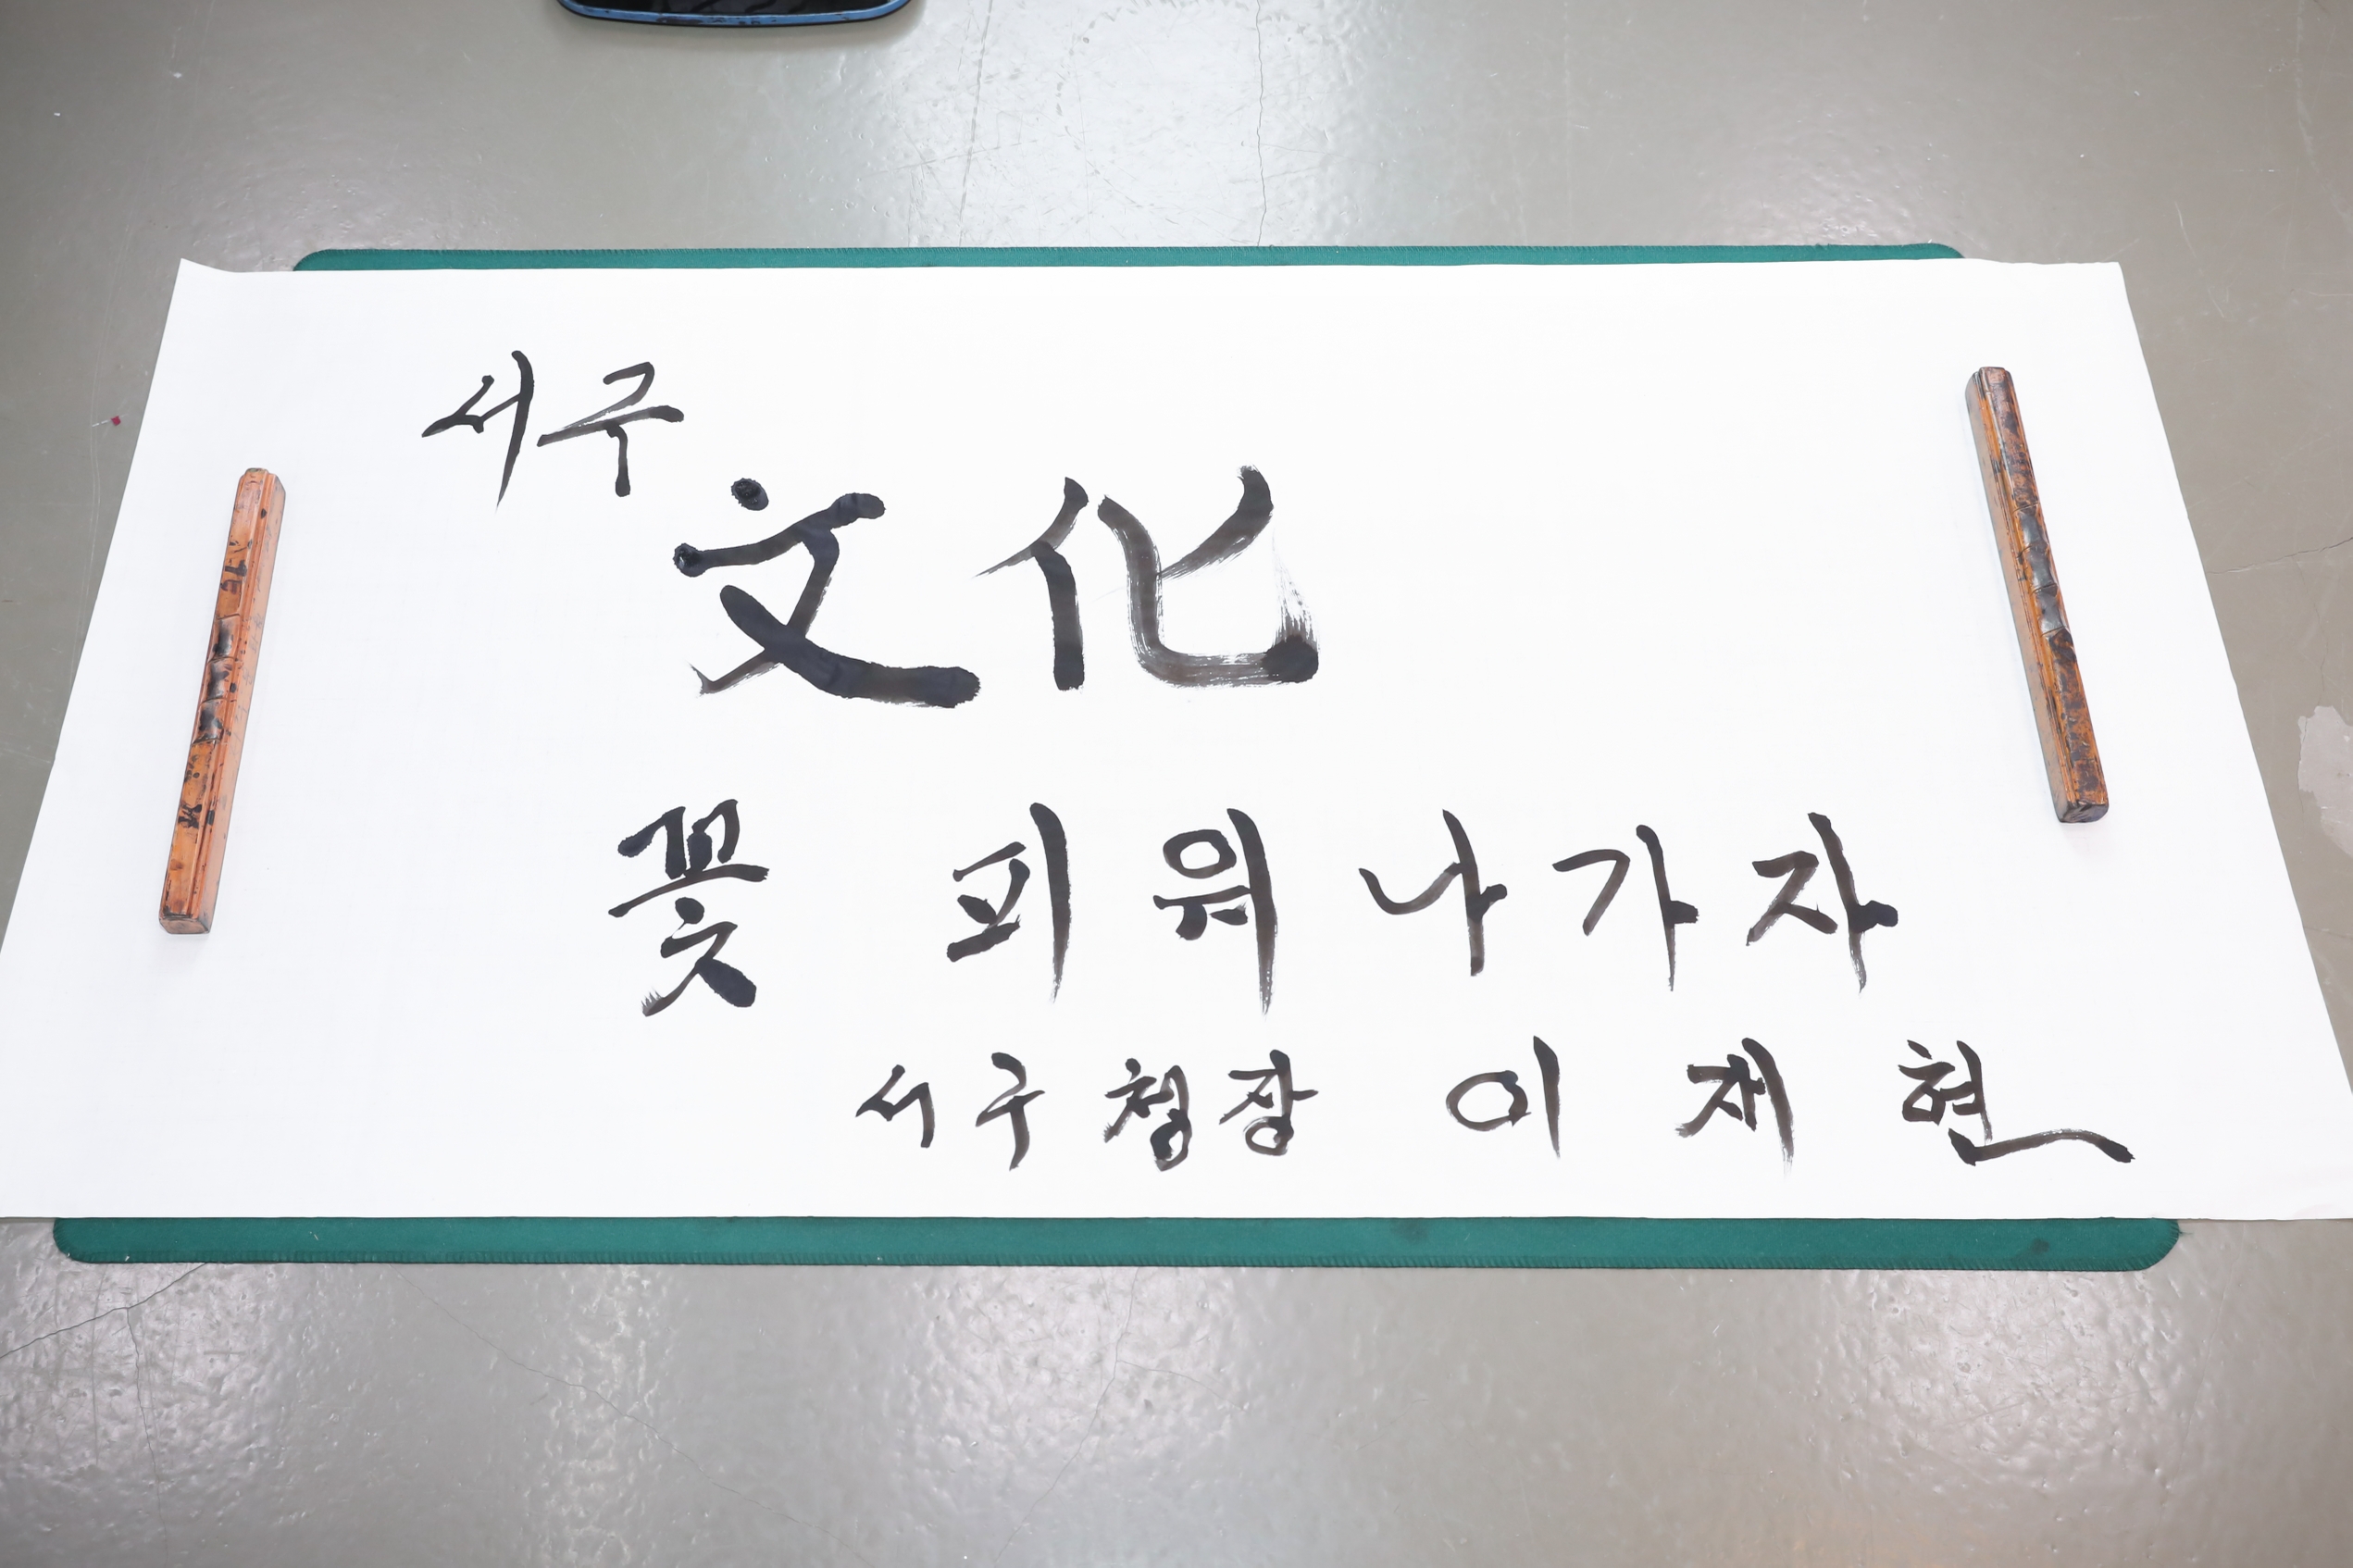 서구
文化
꽃 피워나가자
서구청장 이재현